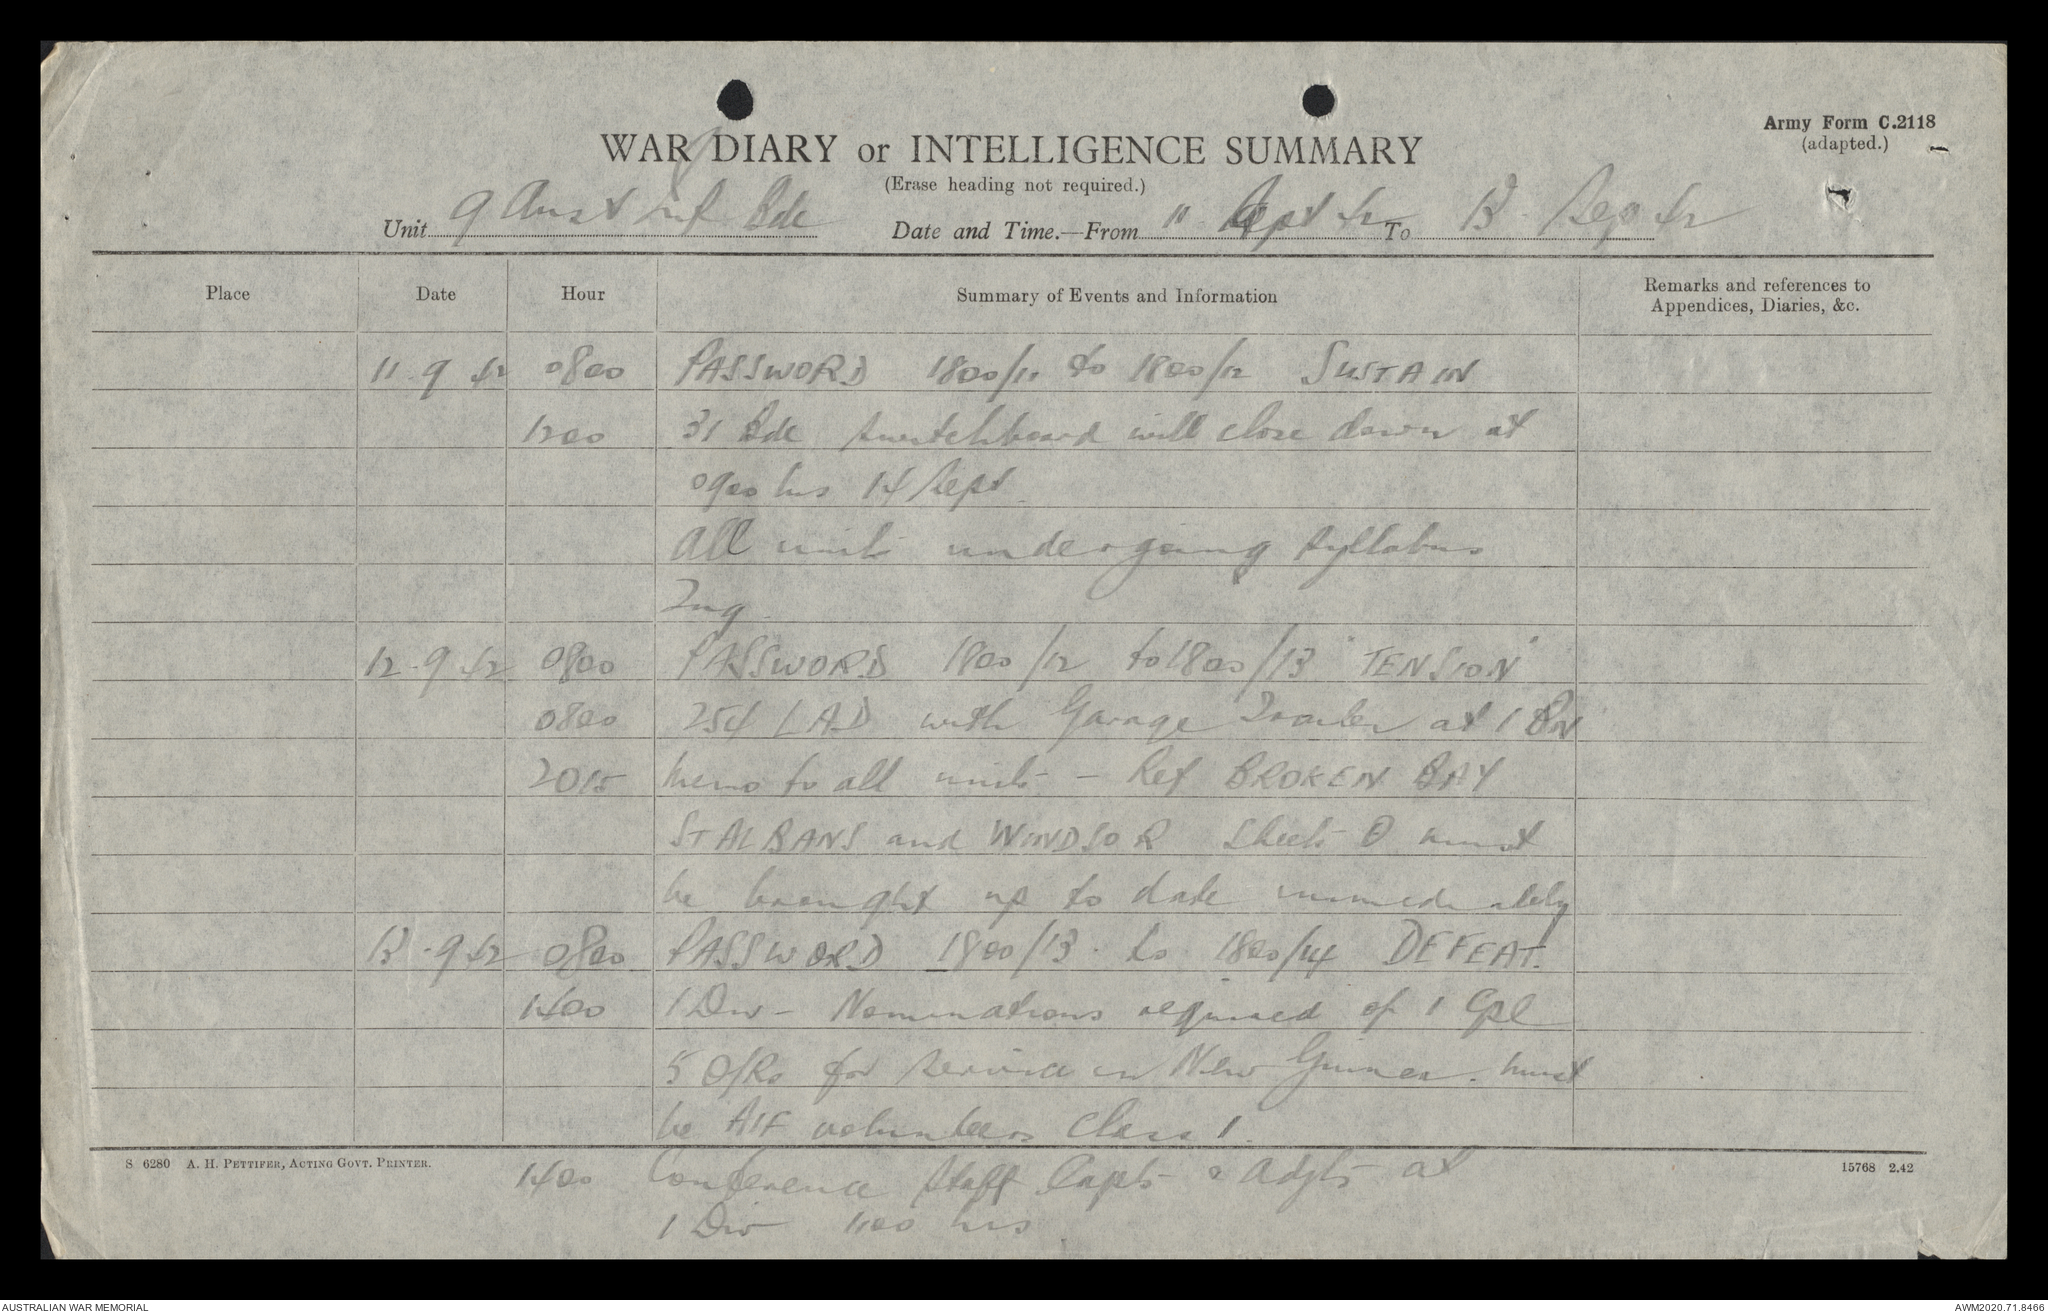 WAR DIARY or INTELLIGENCE SUMMARY
Army Form C.2118
(adapted.)
(Erase heading not required.)
Unit 9 Aust Inf Bde Date and Time.—From 11 Sept 42 To 13 Sep 42
Place Date Hour Summary of Events and Information Remarks and references to
Appendices, Diaries, &c.
11-9 42 0800 PASSWORD 1800/11 to 1800/12 SUSTAIN
1200 31 Bde switchboard will close down at
0900 hrs 14 Sept
All units undergoing syllabus
Tng
12-9 42 0800 PASSWORD 1800/12 to 1800/13 "TENSION"
0800 254 LAD with Garage Trailer at 1 BN
2015 Memo to all units - Ref BROKEN BAY
ST ALBANS and WINDSOR Sheets must
be brought up to date immediately
13-9 42 0800 PASSWORD 1800/13 to 1800/14 DEFEAT.
1400 1 Div - Nominations required of 1 Cpl
5 O/Rs for service in New Guinea. must
be AIF volunteers Class 1.
S 6280 A. H. PETTIFER, ACTING GOVT. PRINTER.
15768 2.42
1400 Conference Staff Capts & Adjts at
1 Div 1100 hrs
AUSTRALIAN WAR MEMORIAL
AWM2020.71.8466